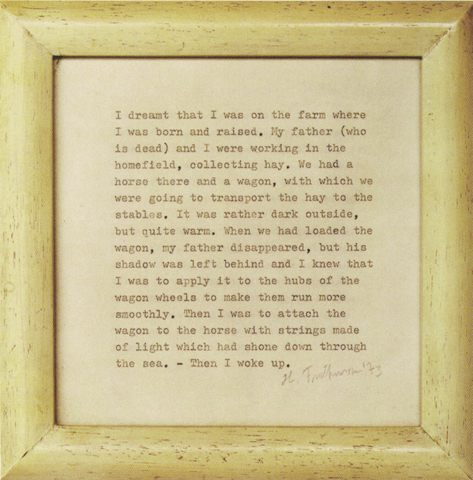 I dreamt that I was on the farm where
I was born and raised. My father (who
is dead) and I were working in the
homefield, collecting hay. We had a
horse there and a wagon, with which we
were going to transport the hay to the
stables. It was rather dark outside,
but quite warm. When we had loaded the
wagon, my father disappeared, but his
shadow was left behind and I knew that
I was to apply it to the hubs of the
wagon wheels to make them run more
smoothly. Then I was to attach the
wagon to the horse with strings made
of light which had shone down through
the sea. - Then I woke up.
'73